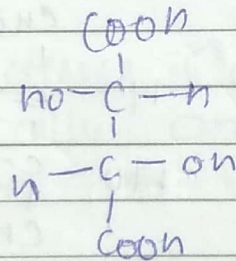 COOH
HO-C-H
H-C-OH
COOH